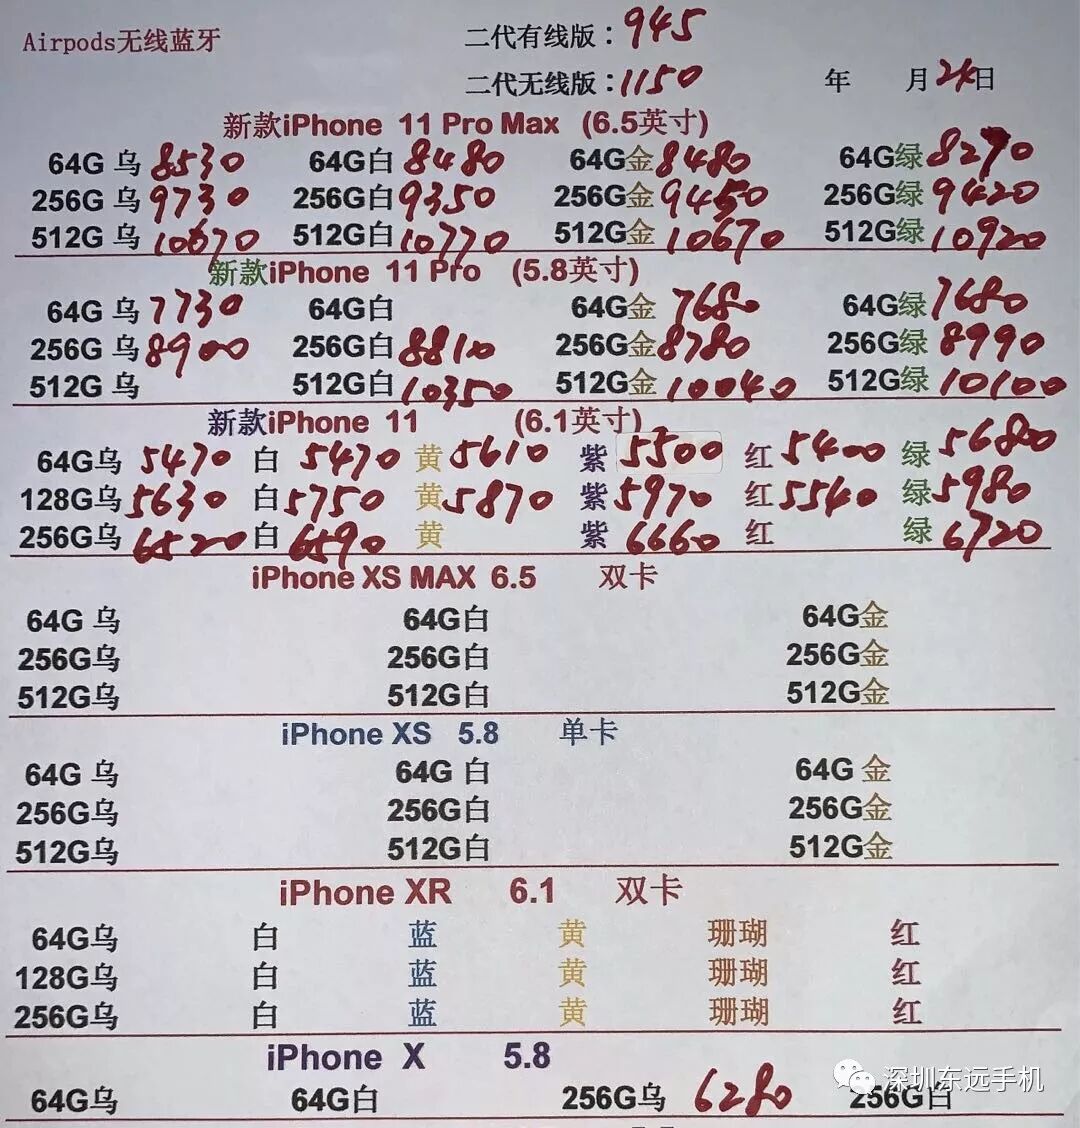 Airpods无线蓝牙 二代有线版：945
二代无线版：1150 年 月24日
新款iPhone 11 Pro Max (6.5英寸)
64G 乌 8530 64G白 8480 64G金 8480 64G绿 8290
256G 乌 9730 256G白 9350 256G金 9450 256G绿 9420
512G 乌 10670 512G白 10770 512G金 10670 512G绿 10920
新款iPhone 11 Pro (5.8英寸)
64G 乌 7730 64G白 64G金 7680 64G绿 7680
256G 乌 8900 256G白 8810 256G金 8780 256G绿 8990
512G 乌 512G白 10350 512G金 10040 512G绿 10100
新款iPhone 11 (6.1英寸)
64G乌 5470 白 5470 黄 5610 紫 5500 红 5400 绿 5680
128G乌 5630 白 5750 黄 5870 紫 5970 红 5540 绿 5980
256G乌 6520 白 6590 黄 紫 6660 红 绿 6720
iPhone XS MAX 6.5 双卡
64G 乌 64G白 64G金
256G乌 256G白 256G金
512G乌 512G白 512G金
iPhone XS 5.8 单卡
64G 乌 64G 白 64G 金
256G乌 256G白 256G金
512G乌 512G白 512G金
iPhone XR 6.1 双卡
64G乌 白 蓝 黄 珊瑚 红
128G乌 白 蓝 黄 珊瑚 红
256G乌 白 蓝 黄 珊瑚 红
iPhone X 5.8
64G乌 64G白 256G乌 6280 256G白
深圳东远手机